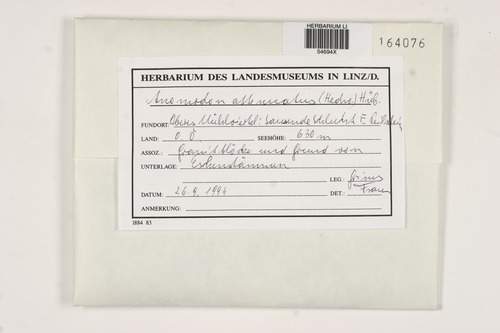 HERBARIUM LI
54694X
164076
HERBARIUM DES LANDESMUSEUMS IN LINZ/D.
Anomodon attenuatus (Hedw.) Hüb.
FUNDORT: Oberes Mühlviertel: Rannaschlucht
LAND: O.Ö. SEEHÖHE: 630 m
ASSOZ.: Granitblöcke und Grund von
UNTERLAGE: Eschenstämmen
LEG.: Grims
DATUM: 26.9.1994 DET.: Franz
ANMERKUNG:
1884 83